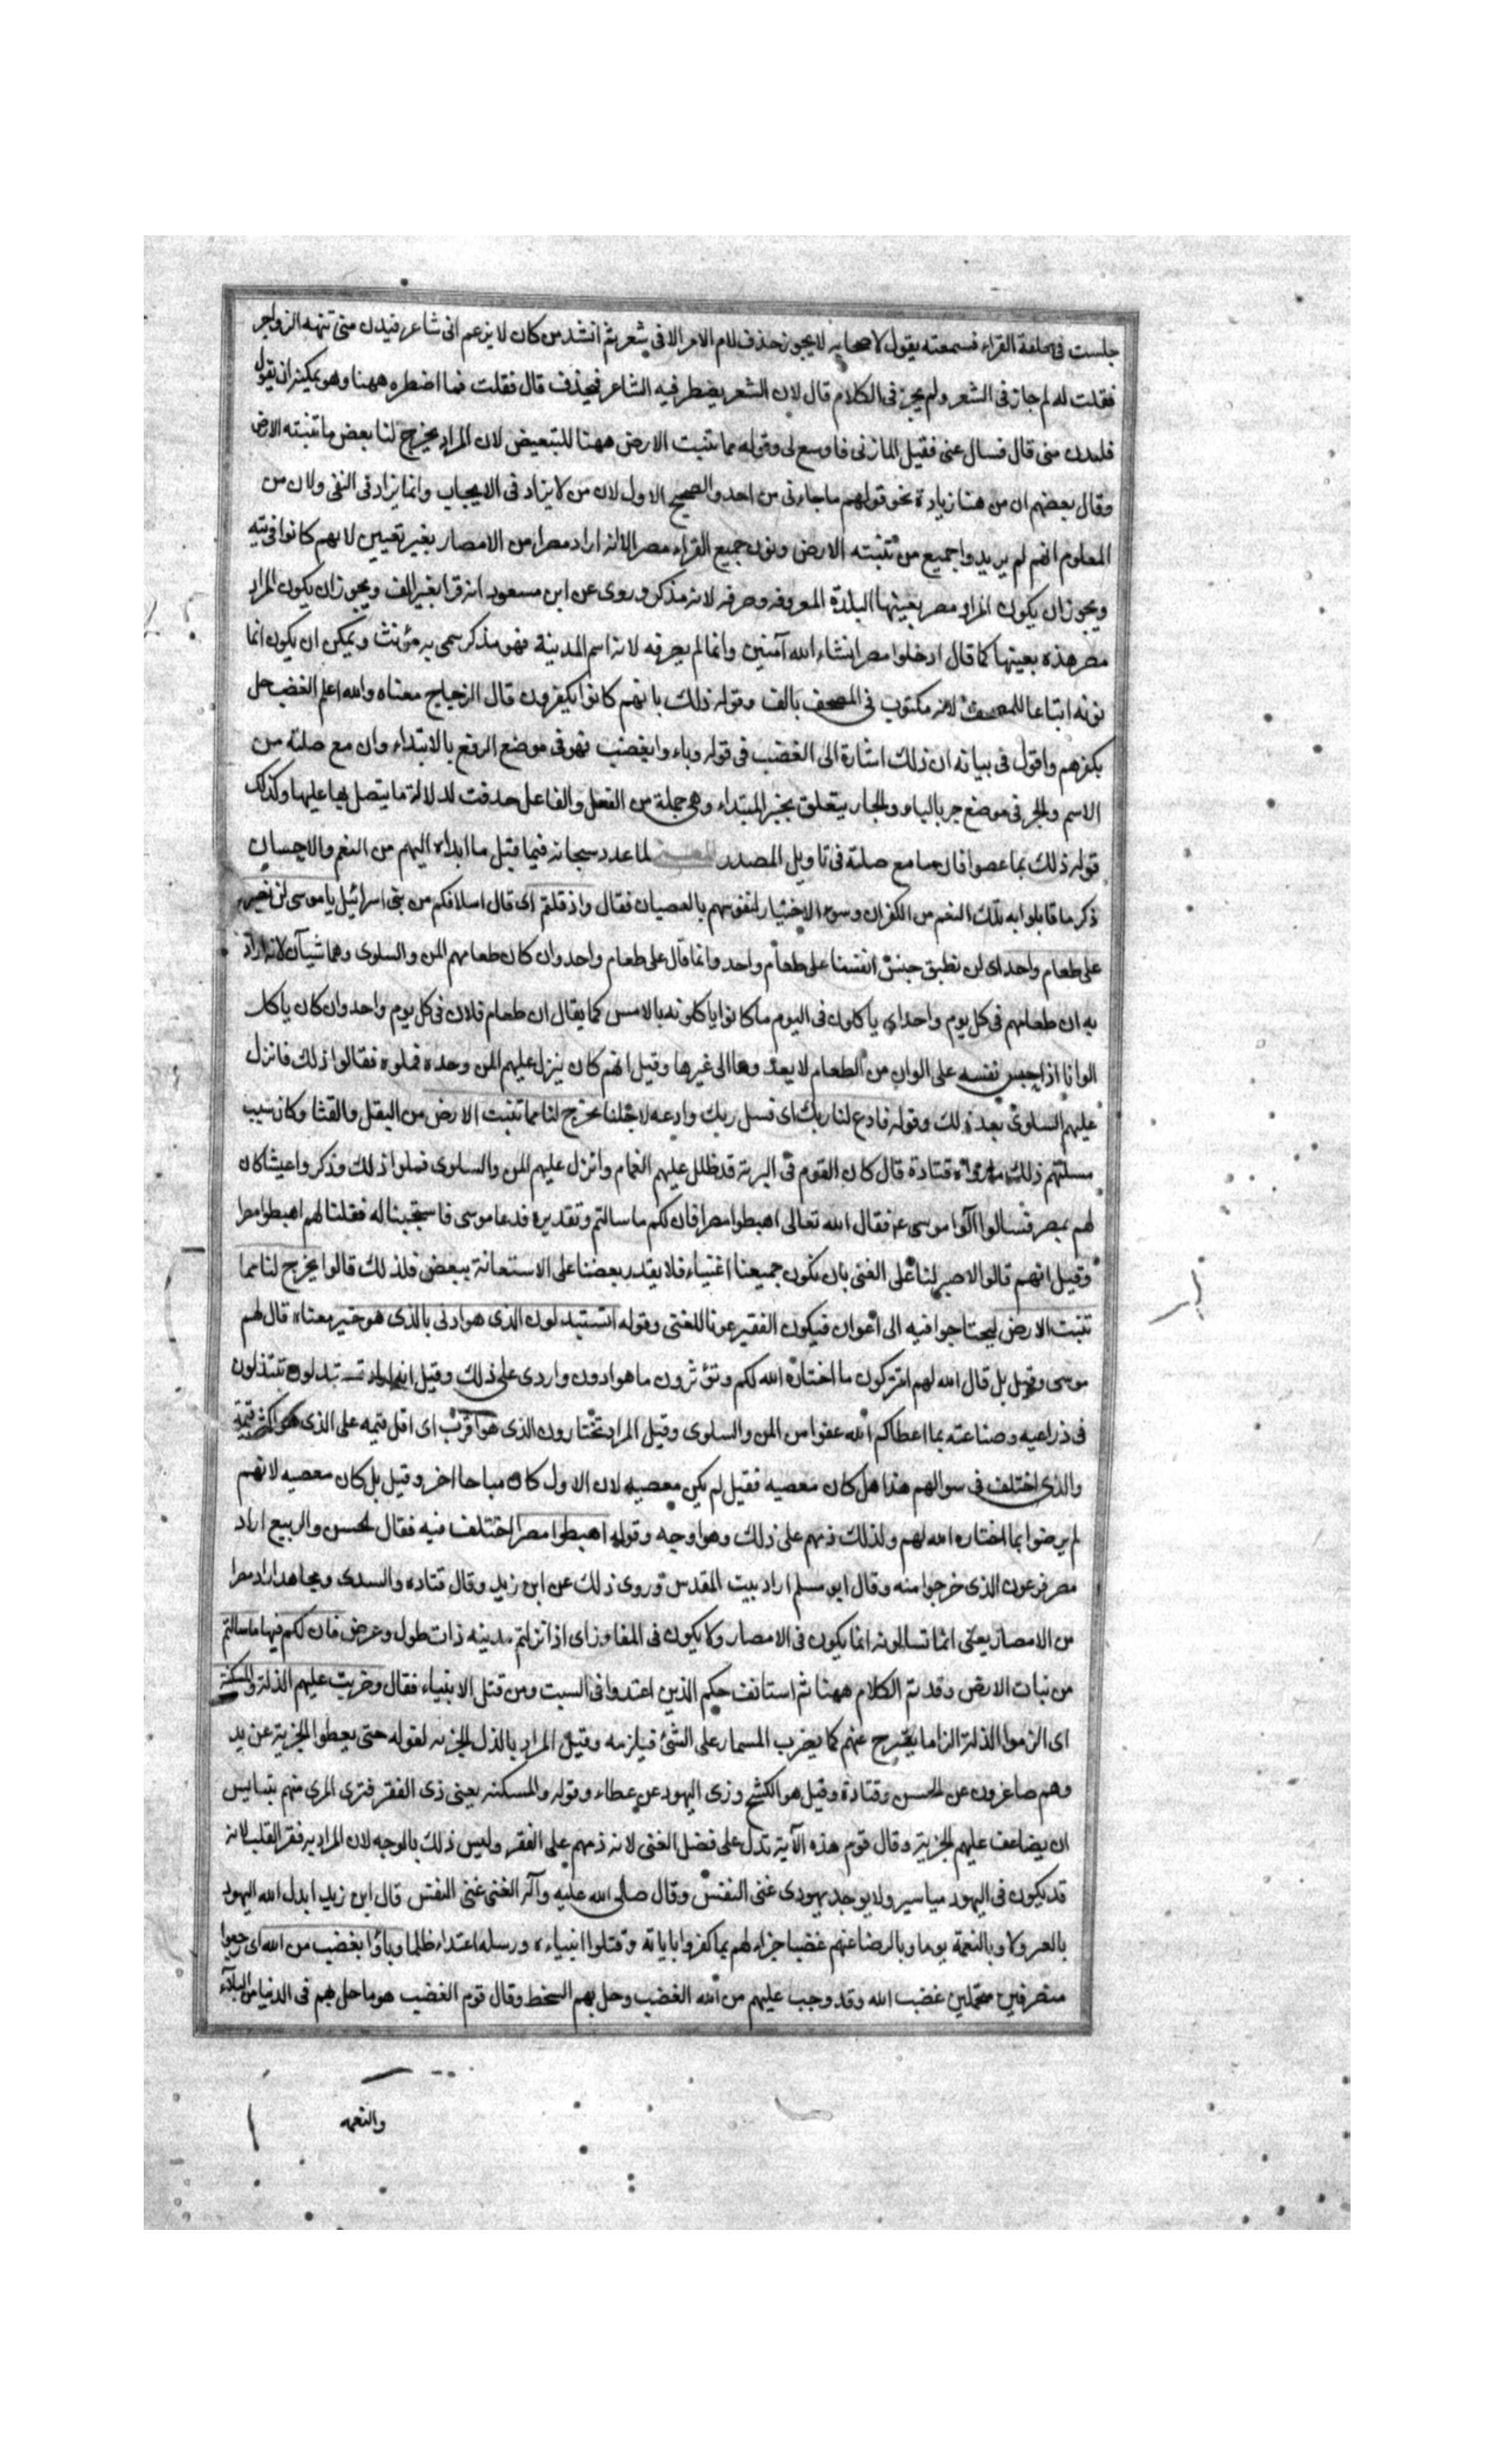 جلست فى حلقة القراء فسمعته يقول لاصحابه لا يجوز حذف لام الامر الا فى شعر ثم انشد من كان لا يزعم انى شاعر فيدن منى تنهه الزواجر
فقلت له لم جاز فى الشعر ولم يجز فى الكلام قال لان الشعر يضطر فيه الشاعر فيحذف قال فقلت فما اضطره ههنا وهو يمكنه ان يقول
فليدن منى قال فسال عنى فقيل المازنى فاوسع لى وقوله مما تنبت الارض ههنا للتبعيض لان المراد يخرج لنا بعض ما تنبته الارض
وقال بعضهم ان من هنا زيادة نحو قولهم ما جاءنى من احد والصحيح الاول لان من لا يزاد فى الايجاب وانما يزاد فى النفى ولان من
المعلوم انهم لم يريدوا جميع من تنبته الارض ونون جميع القراء مصرا لانه اراد مصرا من الامصار بغير تعيين لانهم كانوا فى تيه
ويجوز ان يكون المراد مصر بعينها البلدة المعروفه وصرفه لانه مذكر وروى عن ابن مسعود انه قرا بغير الف ويجوز ان يكون المراد
مصر هذه بعينها كما قال ادخلوا مصر انشاء الله آمنين وانما لم يصرفه لانه اسم المدينة فهو مذكر سمى به مؤنث ويمكن ان يكون انما
نونه اتباعا للمصحف لانه مكتوب فى المصحف بالف وقوله ذلك بانهم كانوا يكفرون قال الزجاج معناه والله اعلم الغضب حل
بكفرهم واقول فى بيانه ان ذلك اشارة الى الغضب فى قوله وباءوا بغضب فهو فى موضع الرفع بالابتداء وان مع صلته من
الاسم والخبر فى موضع جر بالباء والجار يتعلق بخبر المبتداء وهى جملة من الفعل والفاعل حذفت لدلالة ما يتصل بها عليها وكذلك
قوله ذلك بما عصوا فان ما مع صلته فى تاويل المصدر لما عدد سبحانه فيما قبل ما ابداه اليهم من النعم والاحسان
ذكر ما قابلوا به تلك النعم من الكفران وسوء الاختيار لنفوسهم بالعصيان فقال واذ قلتم اى قال اسلافكم من بنى اسرائيل يا موسى لن نصبر
على طعام واحد اى لن نطيق حبس انفسنا على طعام واحد وانما قال على طعام واحد وان كان طعامهم المن والسلوى وهما شيآن لانه اراد
به ان طعامهم فى كل يوم واحد اى ياكلون فى اليوم ما كانوا ياكلونه بالامس كما يقال ان طعام فلان فى كل يوم واحد وان كان ياكل
الوانا اذا حبس نفسه على الوان من الطعام لا يعدوها الى غيرها وقيل انهم كان ينزل عليهم المن وحده فملوه فقالوا ذلك فانزل
عليهم السلوى بعد ذلك وقوله فادع لنا ربك اى فسل ربك وادعه لاجلنا يخرج لنا مما تنبت الارض من البقل والقثا وكان سبب
مسلتهم ذلك ما رواه قتادة قال كان القوم فى البرية قد ظلل عليهم الغمام وانزل عليهم المن والسلوى فملوا ذلك وذكروا عيشا كان
لهم بمصر فسالوا موسى ع فقال الله تعالى اهبطوا مصرا فان لكم ما سالتم وتقديره فدعا موسى فاستجبنا له فقلنا لهم اهبطوا مصرا
وقيل انهم قالوا لا صبر لنا على الغنى بان نكون جميعنا اغنياء فلا يقدر بعضنا على الاستعانة ببعض فلذلك قالوا يخرج لنا مما
تنبت الارض ليحتاجوا فيه الى اعوان فيكون الفقير عونا للغنى وقوله اتستبدلون الذى هو ادنى بالذى هو خير معناه قال لهم
موسى وقيل بل قال الله لهم اتتركون ما اختاره الله لكم وتؤثرون ما هو ادون واردى على ذلك وقيل تستبدلون تتبذلون
فى ذراعيه وصناعته بما اعطاكم الله عفوا من المن والسلوى وقيل المراد تختارون الذى هو اقرب اى اقل قيمه على الذى هو اكثر قيمة
والذى اختلف فى سوالهم هذا هل كان معصيه فقيل لم يكن معصيه لان الاول كان مباحا اخر وقيل بل كان معصيه لانهم
لم يرضوا بما اختاره الله لهم ولذلك ذمهم على ذلك وهو اوجه وقوله اهبطوا مصرا اختلف فيه فقال الحسن والربيع اراد
مصر فرعون الذى خرجوا منه وقال ابو مسلم اراد بيت المقدس وروى ذلك عن ابن زيد وقال قتاده والسدى ومجاهد اراد مصرا
من الامصار يعنى انما تسالونه انما يكون فى الامصار ولا يكون فى المفاوز اى اذا نزلتم مدينه ذات طول وعرض فان لكم فيها ما سالتم
من نبات الارض وقد تم الكلام ههنا ثم استانف حكم الذين اعتدوا فى السبت ومن قتل الانبياء فقال وضربت عليهم الذلة والمسكنة
اى الزموا الذلة الزاما عنهم كما يضرب المسمار على الشئ فيلزمه وقيل المراد بالذل الجزيه لقوله حتى يعطوا الجزية عن يد
وهم صاغرون عن الحسن وقتادة وقيل هو الكشح وزى اليهود عن عطاء وقوله والمسكنه يعنى ذى الفقر فترى المرى منهم يتبايس
ان يضاعف عليهم الجزية وقال قوم هذه الآية تدل على فضل الغنى لانه ذمهم على الفقر وليس ذلك بالوجه لان المراد به فقر القلب لانه
قد يكون فى اليهود مياسير ولا يوجد يهودى غنى النفس وقال صلى الله عليه وآله الغنى غنى النفس قال ابن زيد ابدل الله اليهود
بالعز ذلا وبالنعمة بوسا وبالرضا عنهم غضبا جزاء لهم بما كفروا باياته وقتلوا انبياءه ورسله اعتداء وظلما وباؤا بغضب من الله اى رجعوا
منصرفين متحملين غضب الله وقد وجب عليهم من الله الغضب وحل بهم السخط وقال قوم الغضب هو ما حل بهم فى الدنيا من البلاء
والنعمه